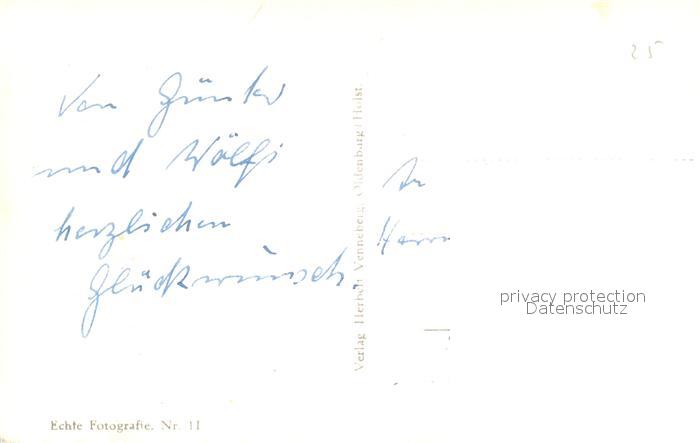 25
Von Günter
und Wölfi
herzlichen
Glückwunsch.
An
Herrn
Verlag Herbert Venneberg, Oldenburg/Holst.
privacy protection
Datenschutz
Echte Fotografie. Nr. 11